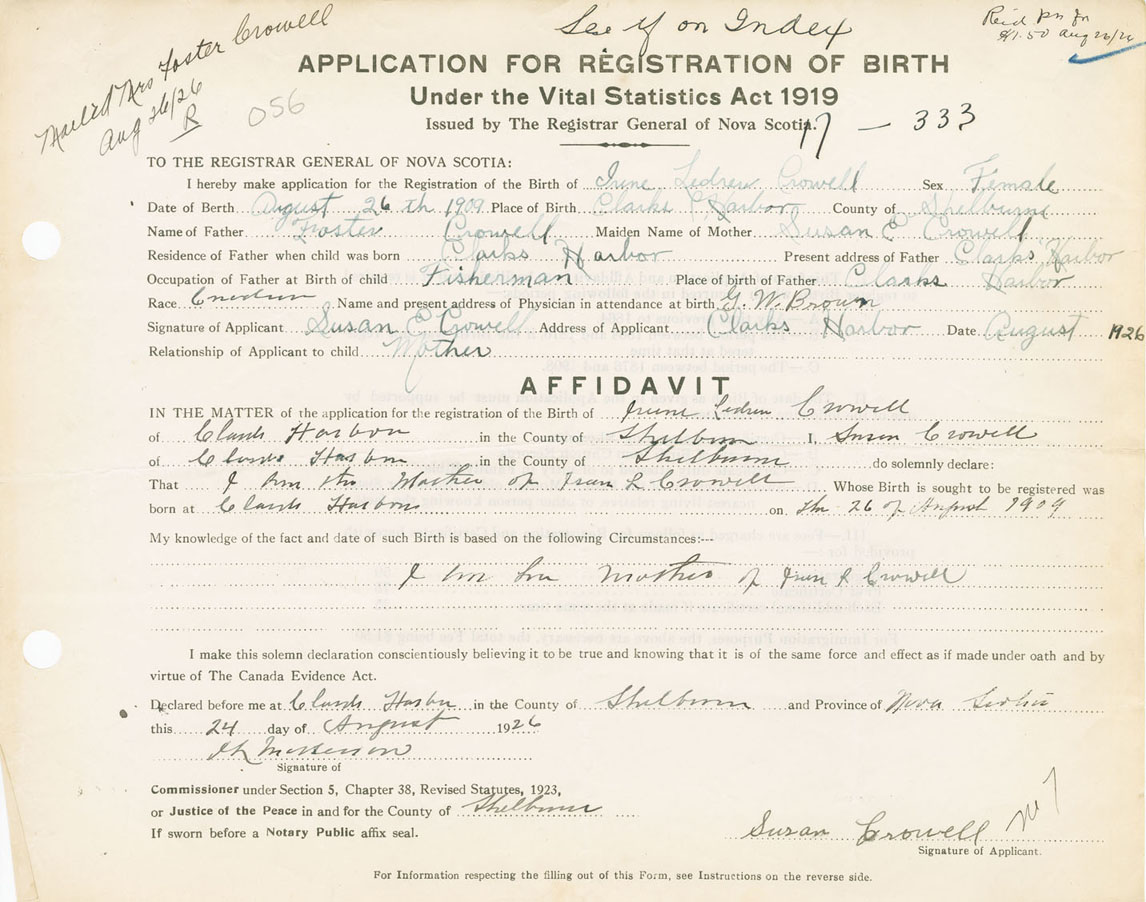 See if on Index
Mailed Mrs Foster Crowell
Aug 26/26
R
056
$1.50 Aug 26/26
APPLICATION FOR REGISTRATION OF BIRTH
Under the Vital Statistics Act 1919
Issued by The Registrar General of Nova Scotia.
17 — 333
TO THE REGISTRAR GENERAL OF NOVA SCOTIA:
I hereby make application for the Registration of the Birth of Irene Ledrew Crowell Sex Female
Date of Berth August 26th 1909 Place of Birth Clarks Harbor County of Shelburne
Name of Father Foster Crowell Maiden Name of Mother Susan E Crowell
Residence of Father when child was born Clarks Harbor Present address of Father Clarks Harbor
Occupation of Father at Birth of child Fisherman Place of birth of Father Clarks Harbor
Race. Name and present address of Physician in attendance at birth G. W. Brown
Signature of Applicant Susan E Crowell Address of Applicant Clarks Harbor Date August 1926
Relationship of Applicant to child Mother
AFFIDAVIT
IN THE MATTER of the application for the registration of the Birth of Irene Ledrew Crowell
of Clarks Harbor in the County of Shelburne I, Susan Crowell
of Clarks Harbor in the County of Shelburne do solemnly declare:
That I am the Mother of Irene L Crowell Whose Birth is sought to be registered was
born at Clarks Harbor on the 26 of August 1909
My knowledge of the fact and date of such Birth is based on the following Circumstances:---
I am the mother of Irene L Crowell
I make this solemn declaration conscientiously believing it to be true and knowing that it is of the same force and effect as if made under oath and by
virtue of The Canada Evidence Act.
Declared before me at Clarks Harbor in the County of Shelburne and Province of Nova Scotia
this 24 day of August 1926
Signature of
Commissioner under Section 5, Chapter 38, Revised Statutes, 1923,
or Justice of the Peace in and for the County of Shelburne
If sworn before a Notary Public affix seal.
Susan Crowell
Signature of Applicant.
For Information respecting the filling out of this Form, see Instructions on the reverse side.